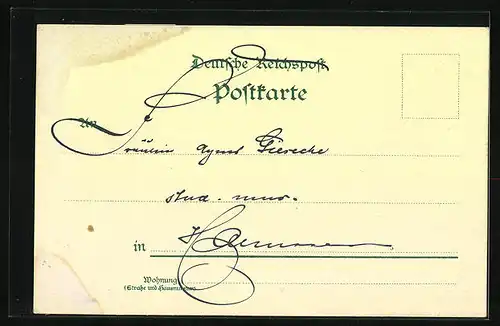 Deutsche Reichspost
Postkarte
An
Fräulein Agnes Giesecke
stud. mus.
in Hannover
Wohnung
(Straße und Hausnummer)